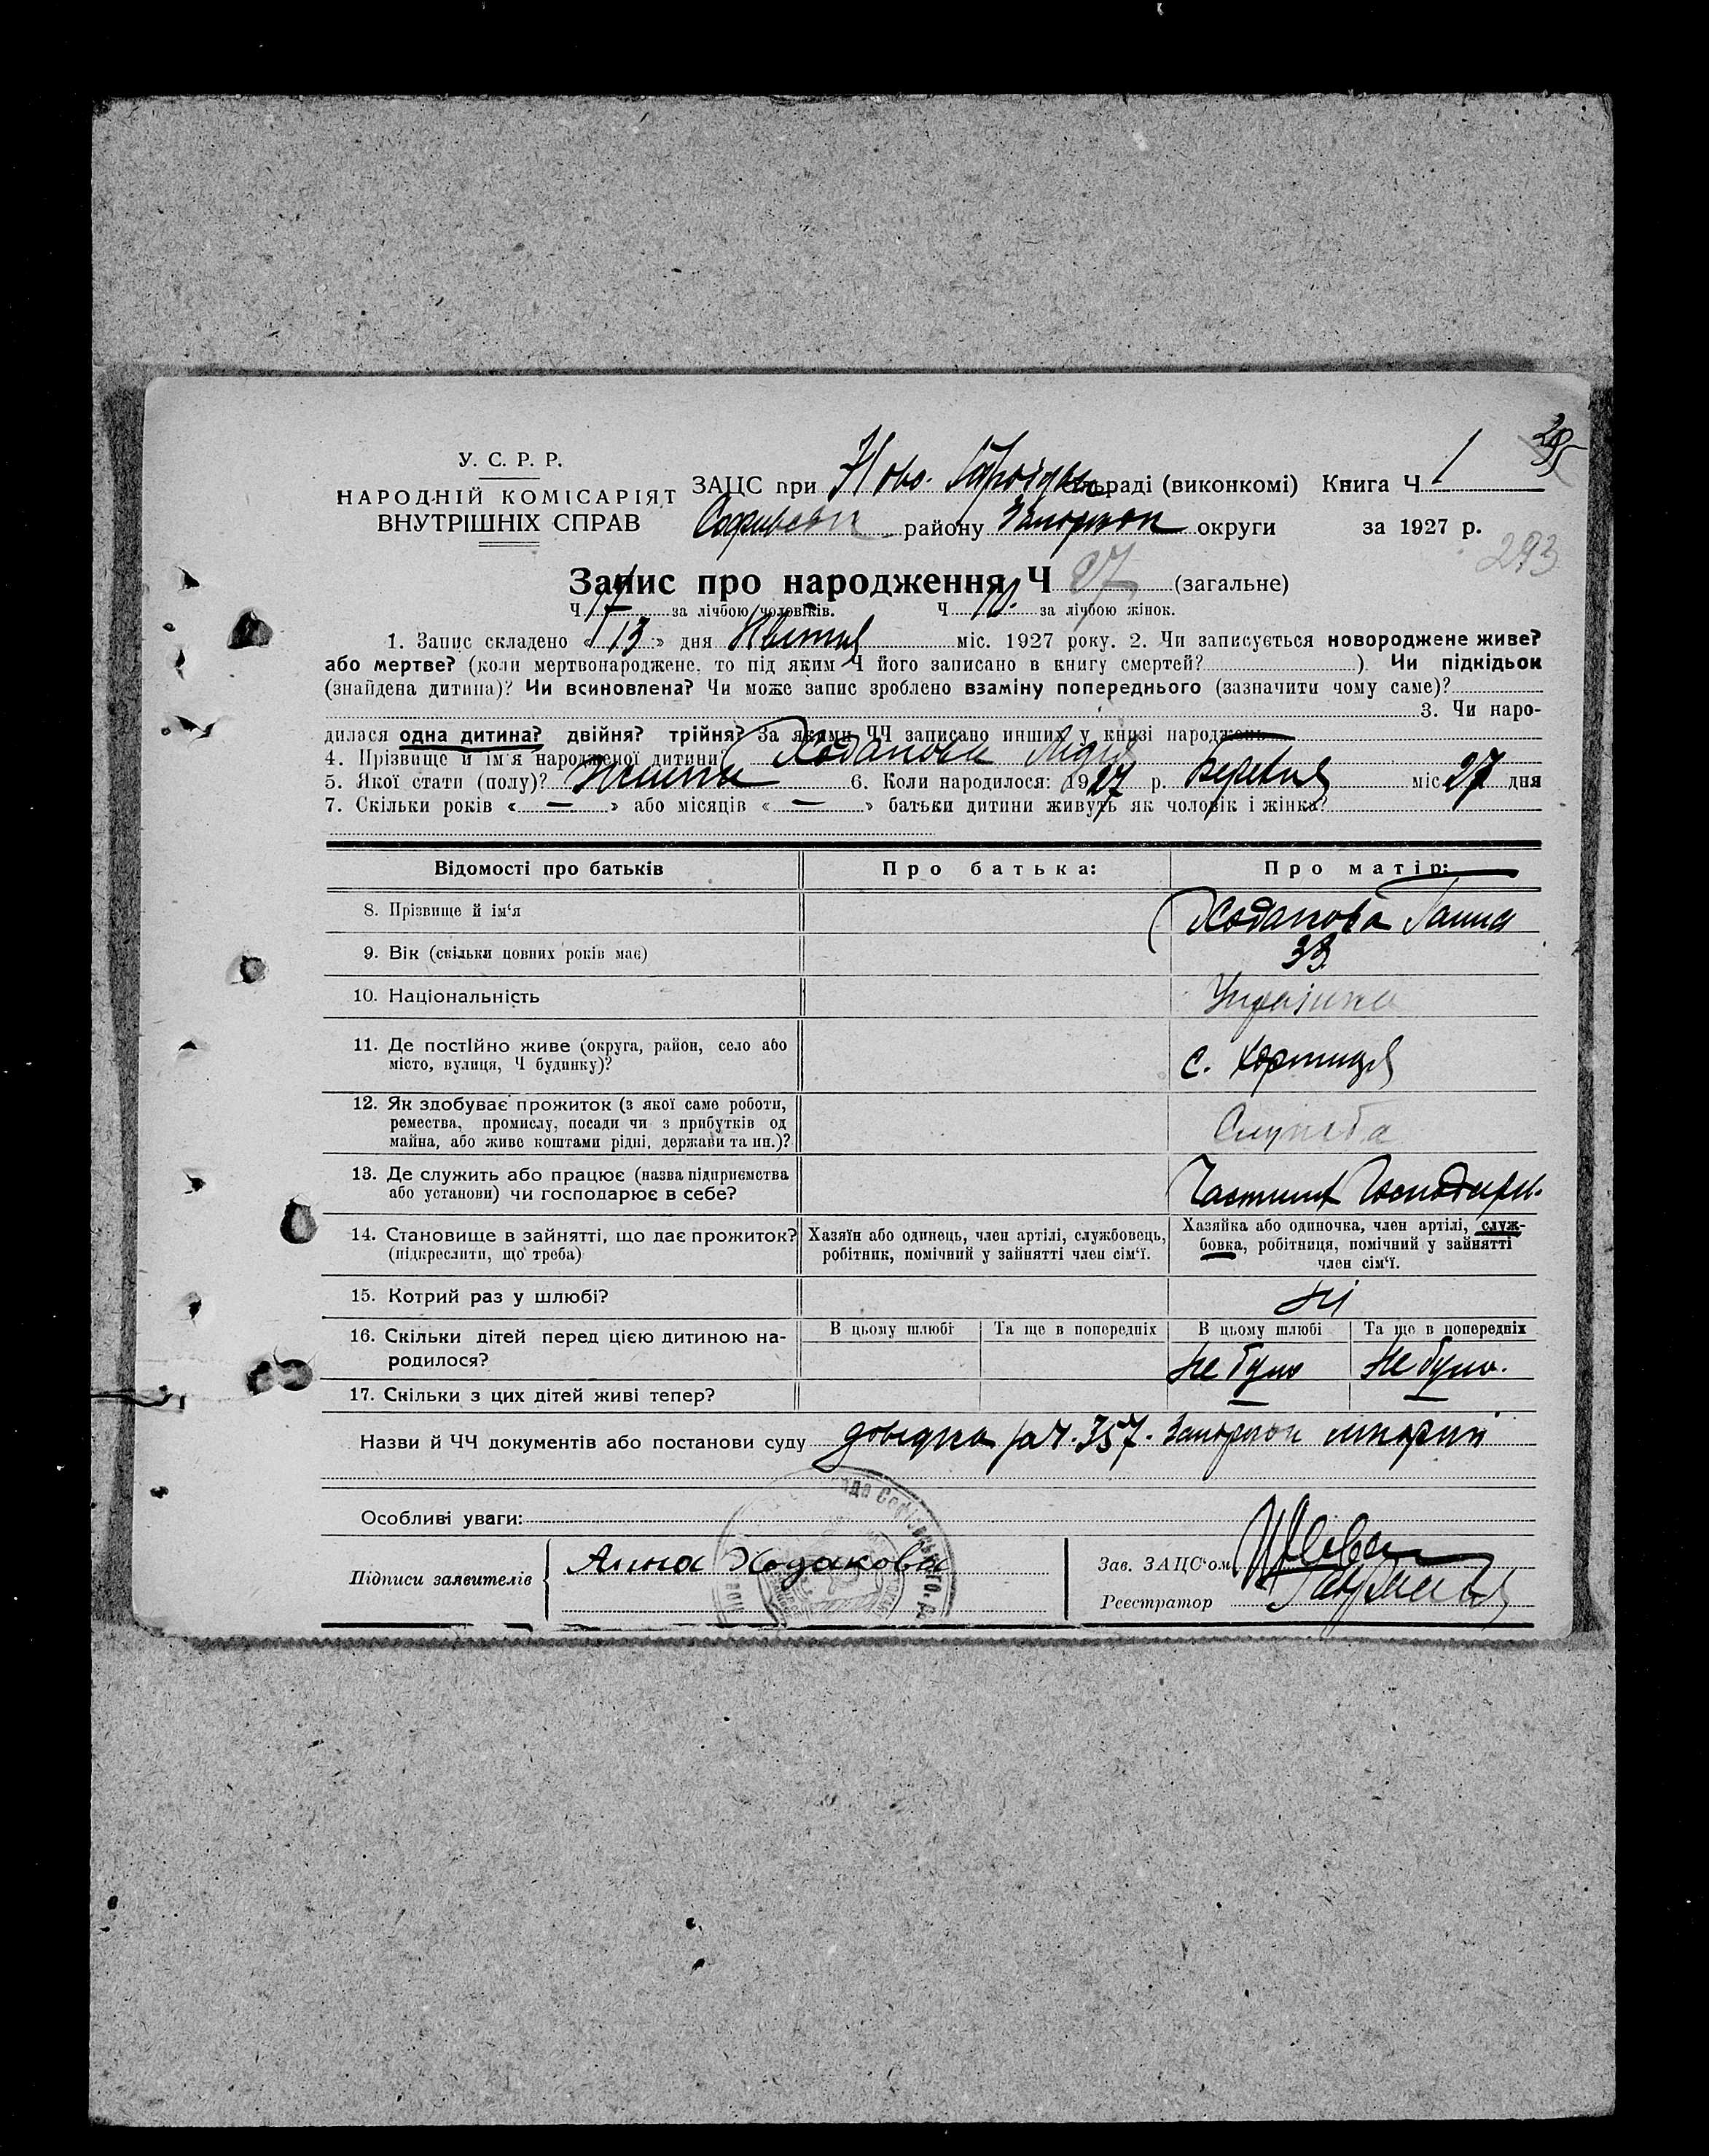 295
293
У. С. Р. Р.
НАРОДНІЙ КОМІСАРІЯТ
ВНУТРІШНІХ СПРАВ
ЗАЦС при Ново. раді (виконкомі) Книга Ч 1
Софивськ району Запорізьк округи за 1927 р.
Запис про народження Ч 27 (загальне)
Ч 17 за лічбою чоловіків. Ч 10. за лічбою жінок.
1. Запис складено « 13 » дня Квітня міс. 1927 року. 2. Чи записується новороджене живе?
або мертве? (коли мертвонароджене, то під яким Ч його записано в книгу смертей? ). Чи підкідьок
(знайдена дитина)? Чи всиновлена? Чи може запис зроблено взаміну попереднього (зазначити чому саме)?
3. Чи наро-
дилася одна дитина? двійня? трійня? За якими ЧЧ записано инших у книзі народжень
4. Прізвище й ім'я народженої дитини? Ходакова Лідія
5. Якої стати (полу)? Жіноча 6. Коли народилося: 1927 р. Березня міс. 27 дня
7. Скільки років « — » або місяців « — » батьки дитини живуть як чоловік і жінка?
Відомості про батьків Про батька: Про матір:
8. Прізвище й ім'я Ходакова Ганна
9. Вік (скільки повних років має) 33
10. Національність Українка
11. Де постійно живе (округа, район, село або
місто, вулиця, Ч будинку)? с. Хортиця
12. Як здобуває прожиток (з якої саме роботи,
ремества, промислу, посади чи з прибутків од
майна, або живе коштами рідні, держави та ин.)? Служба
13. Де служить або працює (назва підприємства
або установи) чи господарює в себе? Господарн.
14. Становище в зайнятті, що дає прожиток?
(підкреслити, що треба)
Хазяїн або одинець, член артілі, службовець,
робітник, помічний у зайнятті член сім'ї.
Хазяйка або одиночка, член артілі, служ-
бовка, робітниця, помічний у зайнятті
член сім'ї.
15. Котрий раз у шлюбі? ні
16. Скільки дітей перед цією дитиною на-
родилося?
В цьому шлюбі Та ще в попередніх В цьому шлюбі Та ще в попередніх
не було не було.
17. Скільки з цих дітей живі тепер? — —
Назви й ЧЧ документів або постанови суду довідка за Ч. 357.
Особливі уваги:
Підписи заявителів Анна Ходакова
Зав. ЗАЦС'ом
Реєстратор